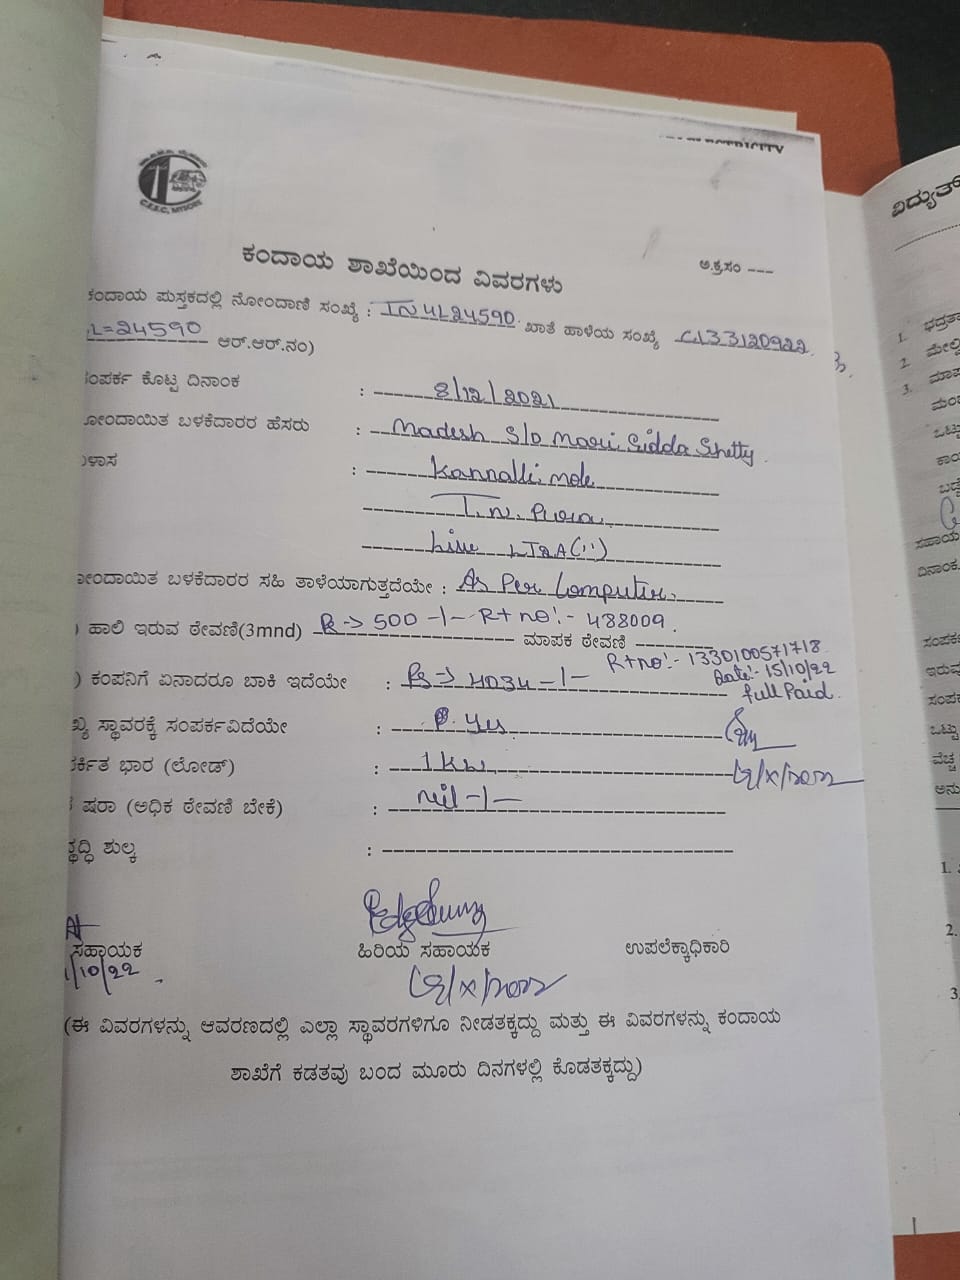 C.E.S.C, MYSORE
ಕಂದಾಯ ಶಾಖೆಯಿಂದ ವಿವರಗಳು
ಅ.ಕ್ರ.ಸಂ ---
ಕಂದಾಯ ಪುಸ್ತಕದಲ್ಲಿ ನೋಂದಾಣಿ ಸಂಖ್ಯೆ : TN4L24590. ಖಾತೆ ಹಾಳೆಯ ಸಂಖ್ಯೆ
L=24590 ಆರ್.ಆರ್.ನಂ)
ಸಂಪರ್ಕ ಕೊಟ್ಟ ದಿನಾಂಕ : 8/12/2021
ನೋಂದಾಯಿತ ಬಳಕೆದಾರರ ಹೆಸರು : Madesh S/o Mari Sidda Shetty
ಳಾಸ : Kannalli mole
T.N. Pura
Live LT2A(ii)
ನೋಂದಾಯಿತ ಬಳಕೆದಾರರ ಸಹಿ ತಾಳೆಯಾಗುತ್ತದೆಯೇ : As Per Computer.
) ಹಾಲಿ ಇರುವ ಠೇವಣಿ(3mnd) Rs -> 500 -/- R+ no:- 488009.
ಮಾಪಕ ಠೇವಣಿ
R+no:- 1330100571718
) ಕಂಪನಿಗೆ ಏನಾದರೂ ಬಾಕಿ ಇದೆಯೇ : Rs -> 4034 -/-
Date:- 15/10/22
full Paid.
ಖ್ಯ ಸ್ಥಾವರಕ್ಕೆ ಸಂಪರ್ಕವಿದೆಯೇ : yes
ರ್ಕಿತ ಭಾರ (ಲೋಡ್) : 1 kw
ಷರಾ (ಅಧಿಕ ಠೇವಣಿ ಬೇಕೆ) : nil -/-
ದ್ಧಿ ಶುಲ್ಕ :
ಸಹಾಯಕ
ಹಿರಿಯ ಸಹಾಯಕ
ಉಪಲೆಕ್ಕಾಧಿಕಾರಿ
/10/22
(ಈ ವಿವರಗಳನ್ನು ಆವರಣದಲ್ಲಿ ಎಲ್ಲಾ ಸ್ಥಾವರಗಳಿಗೂ ನೀಡತಕ್ಕದ್ದು ಮತ್ತು ಈ ವಿವರಗಳನ್ನು ಕಂದಾಯ
ಶಾಖೆಗೆ ಕಡತವು ಬಂದ ಮೂರು ದಿನಗಳಲ್ಲಿ ಕೊಡತಕ್ಕದ್ದು)
ವಿದ್ಯುತ್
1. ಭದ್ರತಾ
2. ಮೇಲ್ವಿ
3. ಮಾಪ
ಒಟ್ಟು
ಸಹಾಯ
ದಿನಾಂಕ.
ಸಂಪರ್ಕ
ಇರುವ
ಸಂಪರ್ಕ
ಒಟ್ಟು
ವೆಚ್ಚ
ಅನು
1.
2.
3.